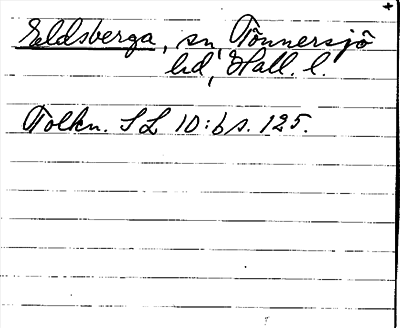 +
Eldsberga, sn, Tönnersjö
hd, Hall. l.
Tolkn. SL 10:b s. 125.